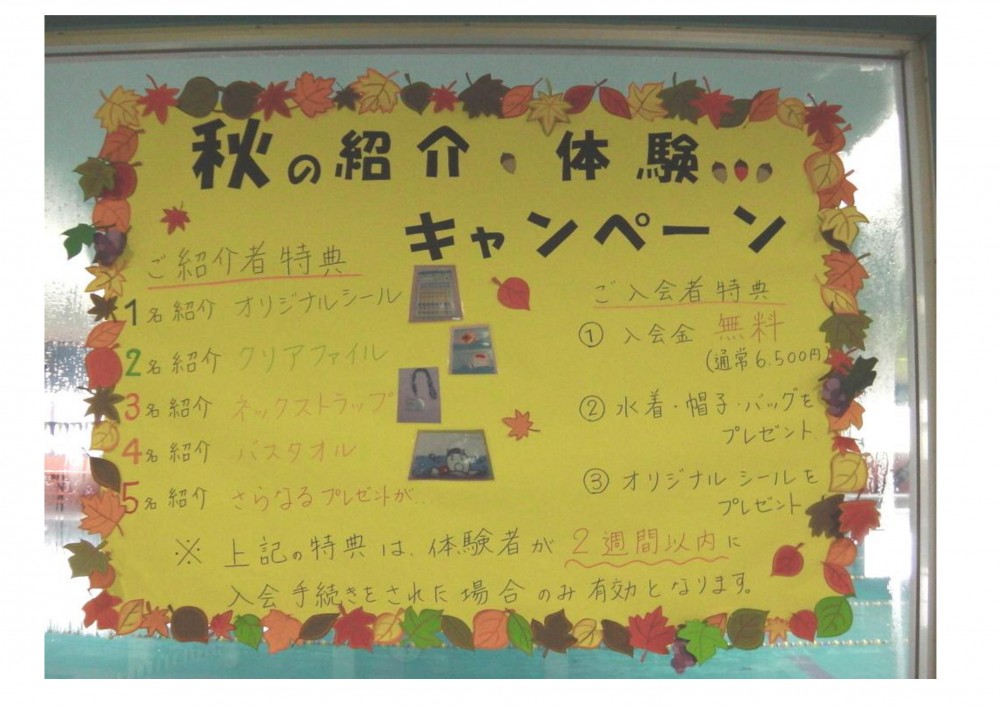 秋の紹介・体験
キャンペーン
ご紹介者特典
1名紹介 オリジナルシール
2名紹介 クリアファイル
3名紹介 ネックストラップ
4名紹介 バスタオル
5名紹介 さらなるプレゼントが…
ご入会者特典
① 入会金 無料
(通常6,500円)
② 水着・帽子・バッグを
プレゼント
③ オリジナルシールを
プレゼント
※ 上記の特典は、体験者が2週間以内に
入会手続きをされた場合のみ有効となります。